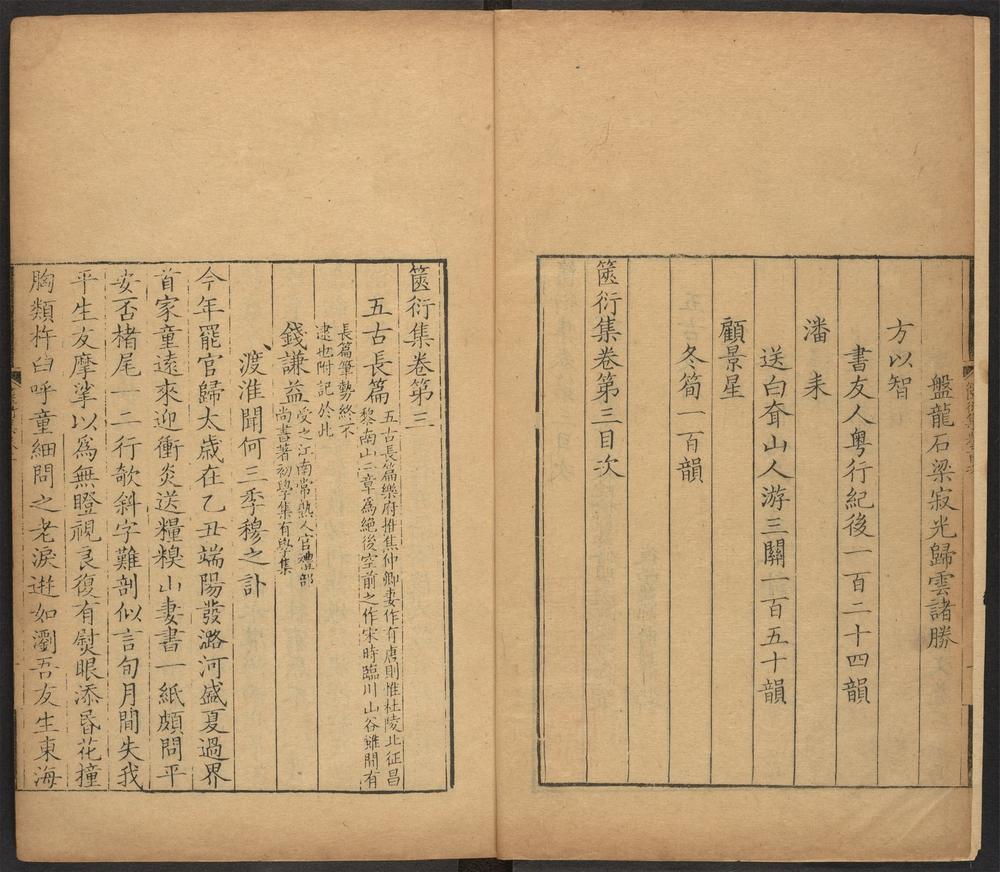 盤龍石梁寂光歸雲諸勝
方以智
書友人粵行紀後一百二十四韻
潘耒
送白耷山人游三關一百五十韻
顧景星
冬筍一百韻
篋衍集卷第三目次
篋衍集卷第三
五古長篇
五古長篇樂府推焦仲卿妻作有唐則惟杜陵北征昌
黎南山二章為絕後空前之作宋時臨川山谷雖間有
長篇筆勢終不
逮也附記於此
錢謙益
受之江南常熟人官禮部
尚書著初學集有學集
渡淮聞何三季穆之訃
今年罷官歸太歲在乙丑端陽發潞河盛夏過界
首家童遠來迎衝炎送糧糗山妻書一紙頗問平
安否楮尾一二行欹斜字難剖似言旬月間失我
平生友摩挲以爲無瞪視良復有熨眼添昬花撞
胸類杵臼呼童細問之老淚迸如瀏吾友生東海